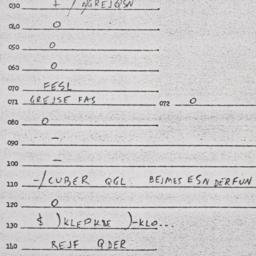 030 I / AGREJQSN
040 O
050 O
060 O
070 FESL
071 GREJSE FAS 072 O
080 O
090 –
100 –
110 -/CUBER QGL. BEJMES ESN DERFUN
120 O
130 $ )KLEPKDE )-KLO...
140 REJF QDER